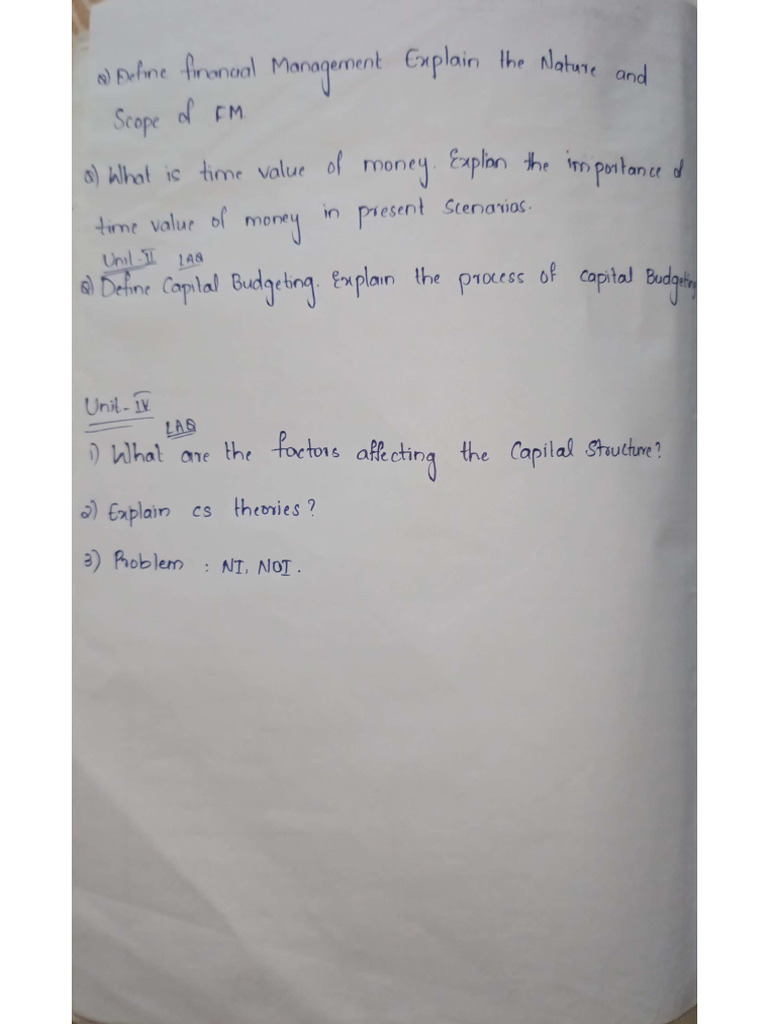 Q) Define financial Management Explain the Nature and
Scope of FM.
Q) What is time value of money. Explian the importance of
time value of money in present Scenarios.
Unit-II LAQ
Q) Define Capital Budgeting. Explain the process of capital Budgeting
Unit-IV
LAQ
1) What are the factors affecting the Capital Structure?
2) Explain cs theories?
3) Problem : NI, NOI.